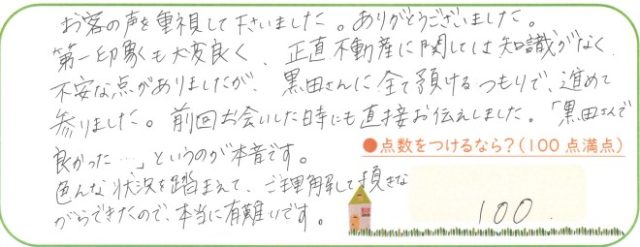 お客の声を重視して下さいました。ありがとうございました。
第一印象も大変良く、正直不動産に関しては知識がなく
不安な点がありましたが、黒田さんに全て預けるつもりで、進めて
参りました。前回お会いした時にも直接お伝えしました。「黒田さんで
良かった…」というのが本音です。
色んな状況を踏まえて、ご理解して頂きな
がらできたので、本当に有難いです。
●点数をつけるなら?(100点満点)
100